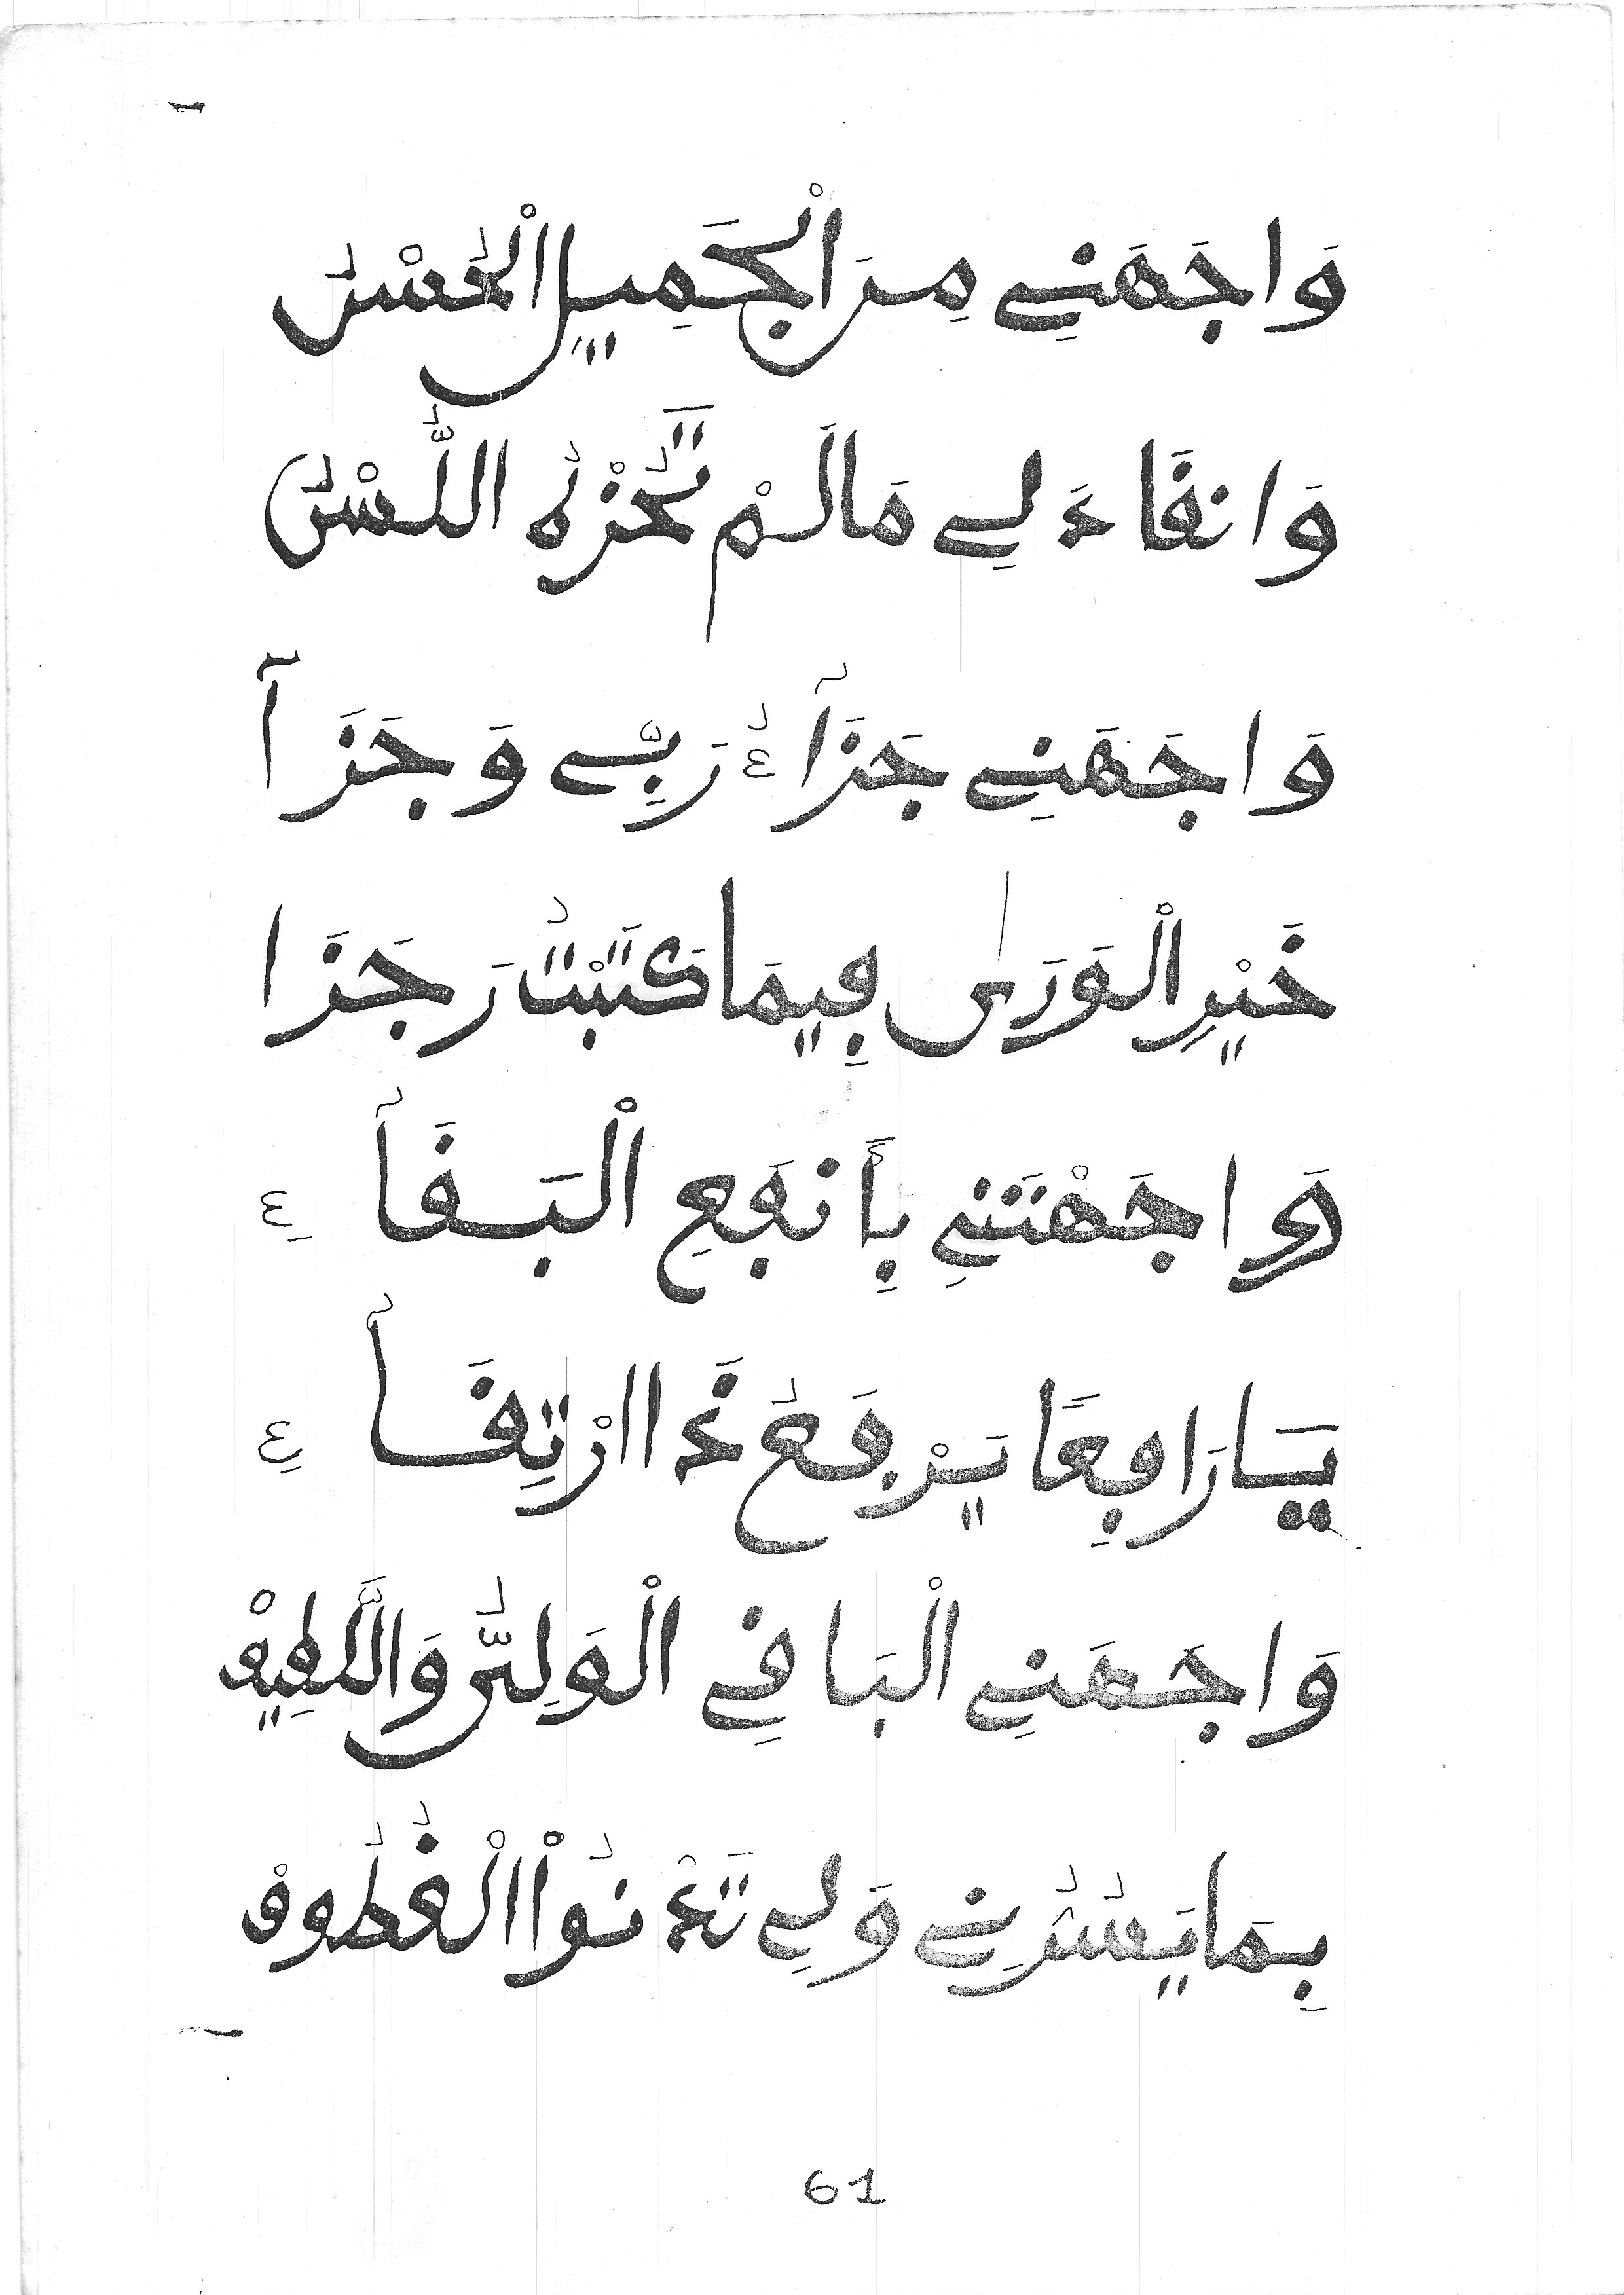 وَاجَهَنِي مِنَ الْجَمِيلِ الْحُسْنُ
وَانقَادَ لِي مَالَمْ تَحُزْهُ اللُّسْنُ
وَاجَهَنِي جَزَآءُ رَبِّي وَجَزَآ
خَيْرِ الْوَرَىٰ فِيمَا كَتَبْتُ رَجَزَا
وَاجَهْتَنِي بِأَنفَعِ الْبَقَآءِ
يَا رَافِعًا يَرْفَعُ ذَا ارْتِقَآءِ
وَاجَهَنِي الْبَاقِي الْوَلِيُّ وَاللَّطِيفْ
بِمَا يَسُرُّنِي وَلِي تَدْنُواْ الْقُطُوفْ
61